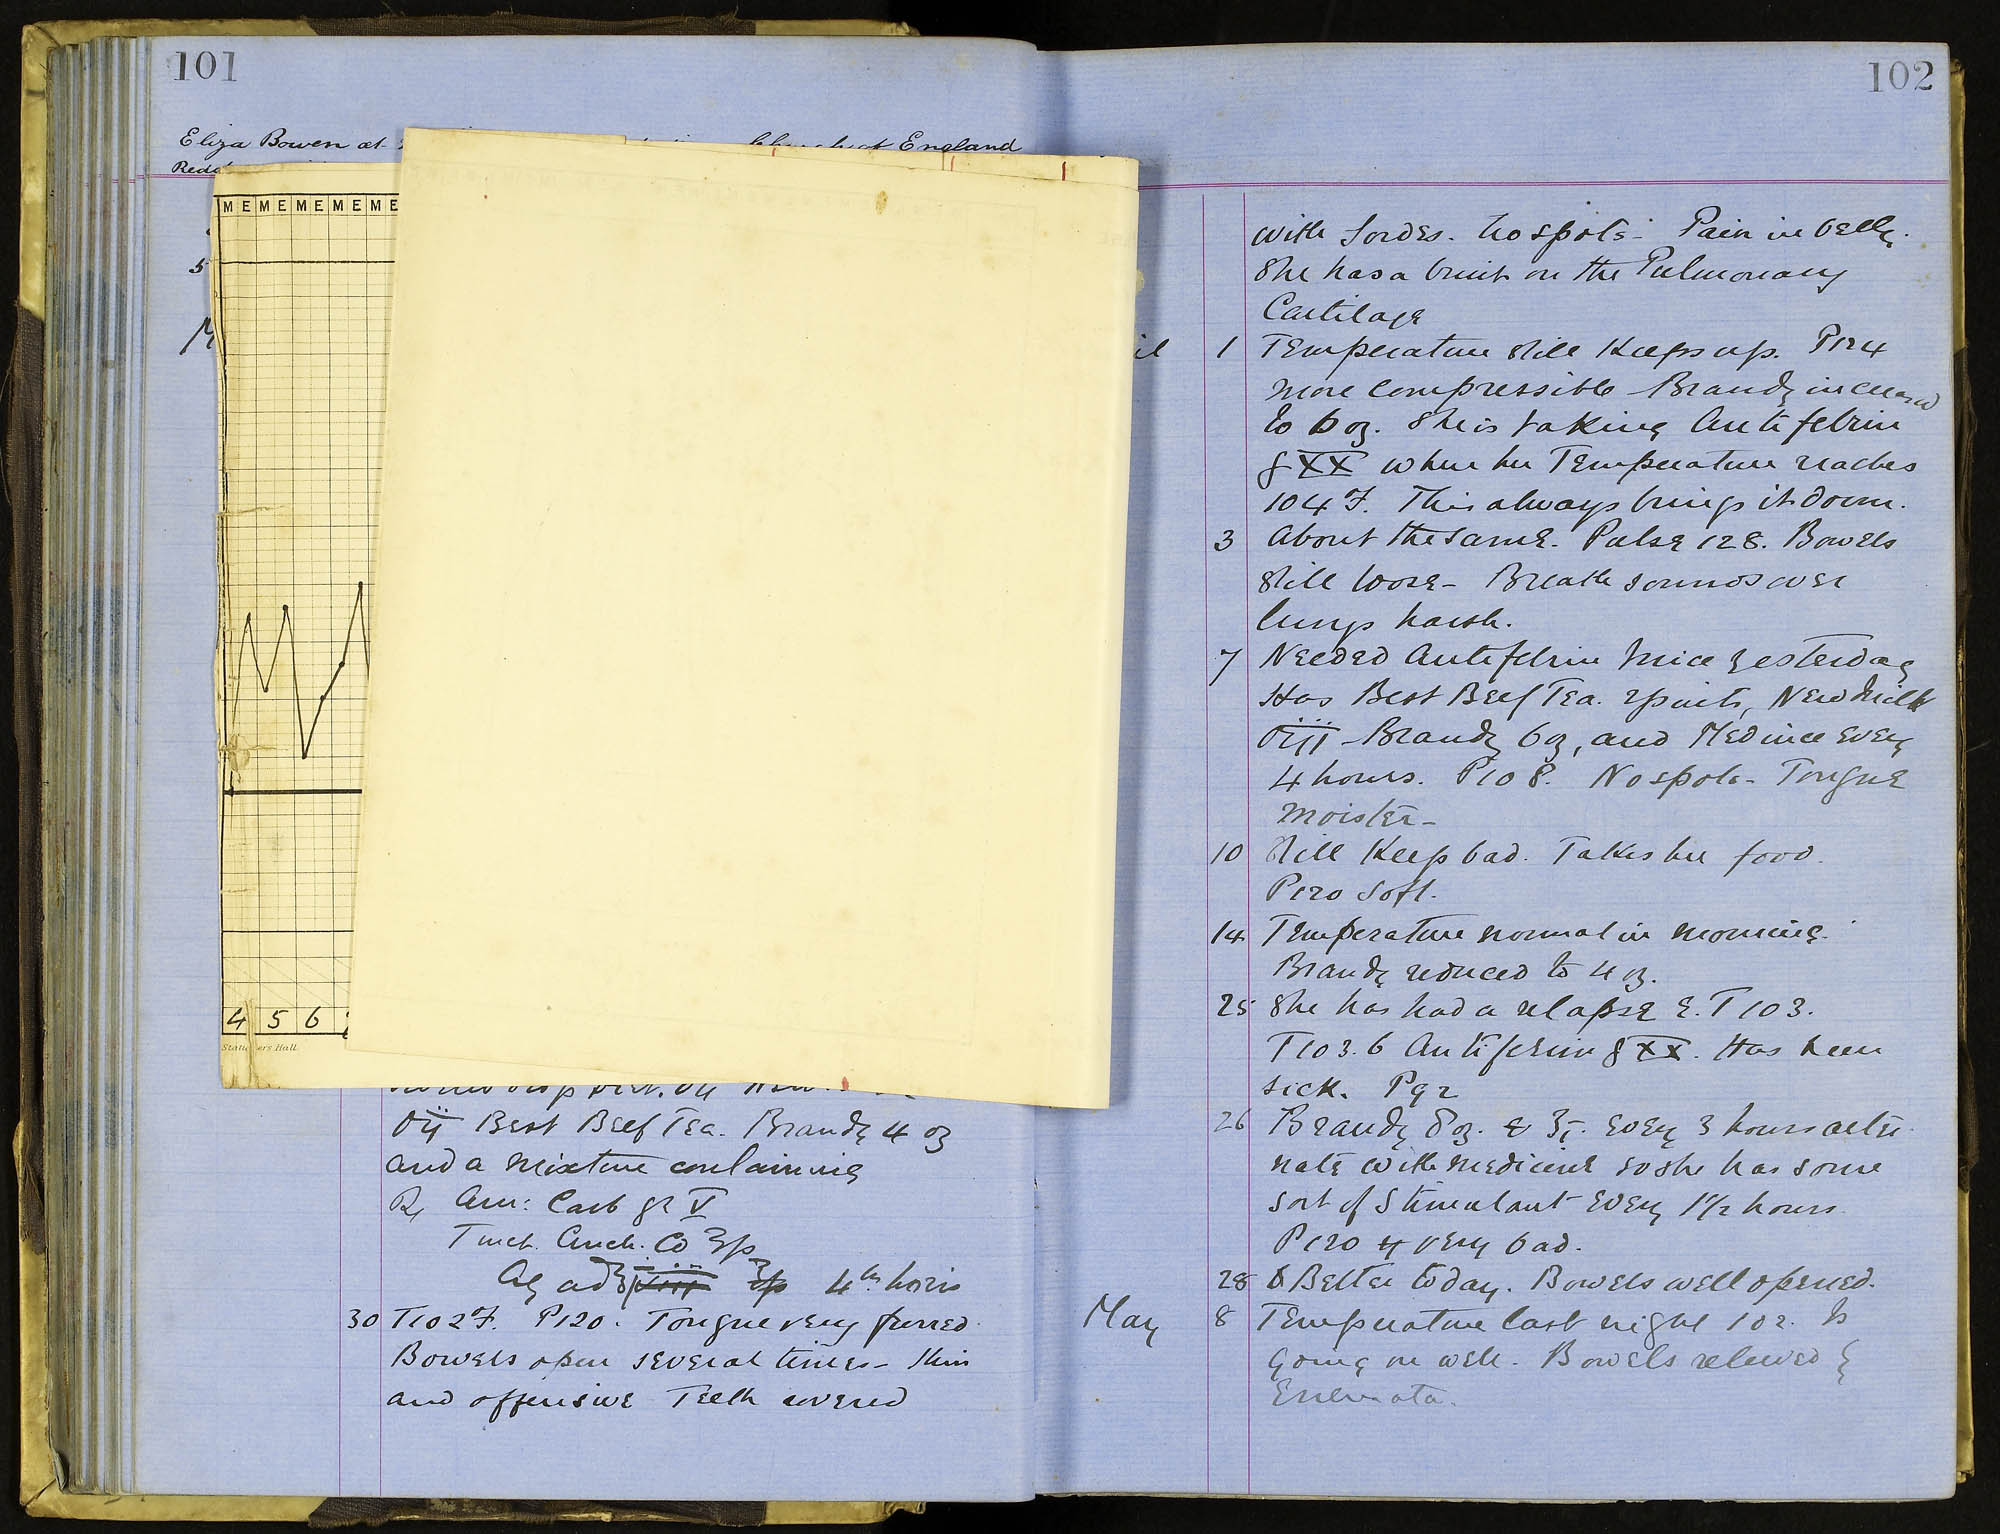 101
Eliza Bowen at Church of England
Redd
M E M E M E M E M E
5
4 5 6
Stationers Hall
Oij Best Beef Tea. Brandy 4 oz
and a mixture containing
Rx Am: Carb gr V
Tinct. Cinch. Co ʒſs
Aq ad 4th hours
30 T102 F. P120. Tongue very furred
Bowels open several times - thin
and offensive Teeth covered
102
with Sordes. No spots - Pain in belly.
She has a bruit on the Pulmonary
Cartilage
il 1 Temperature still keeps up. P124
more compressible - Brandy increased
to 6 oz. She is taking Antifebrin
g XX when her Temperature reaches
104 F. This always brings it down.
3 About the same. Pulse 128. Bowels
still loose - Breath sounds over
lungs harsh.
7 Needed Antifebrin twice yesterday
Has Best Beef Tea. 2 pints, New Milk
Oiij - Brandy 6 oz, and Medince every
4 hours. P108. No spots - Tongue
moister -
10 Still keeps bad. Takes her food.
P120 soft.
14 Temperature normal in morning.
Brandy reduced to 4 oz.
25 She has had a relapse E. T 103.
T103.6 Antifebrin g XX. Has been
sick. P92
26 Brandy 8 oz. every 3 hours alter
nate with medicine so she has some
sort of Stimulant every 1 1/2 hours.
P120 very bad.
28 Better today. Bowels well opened.
May 8 Temperature last night 102. Is
going on well. Bowels relieved
Enemata.